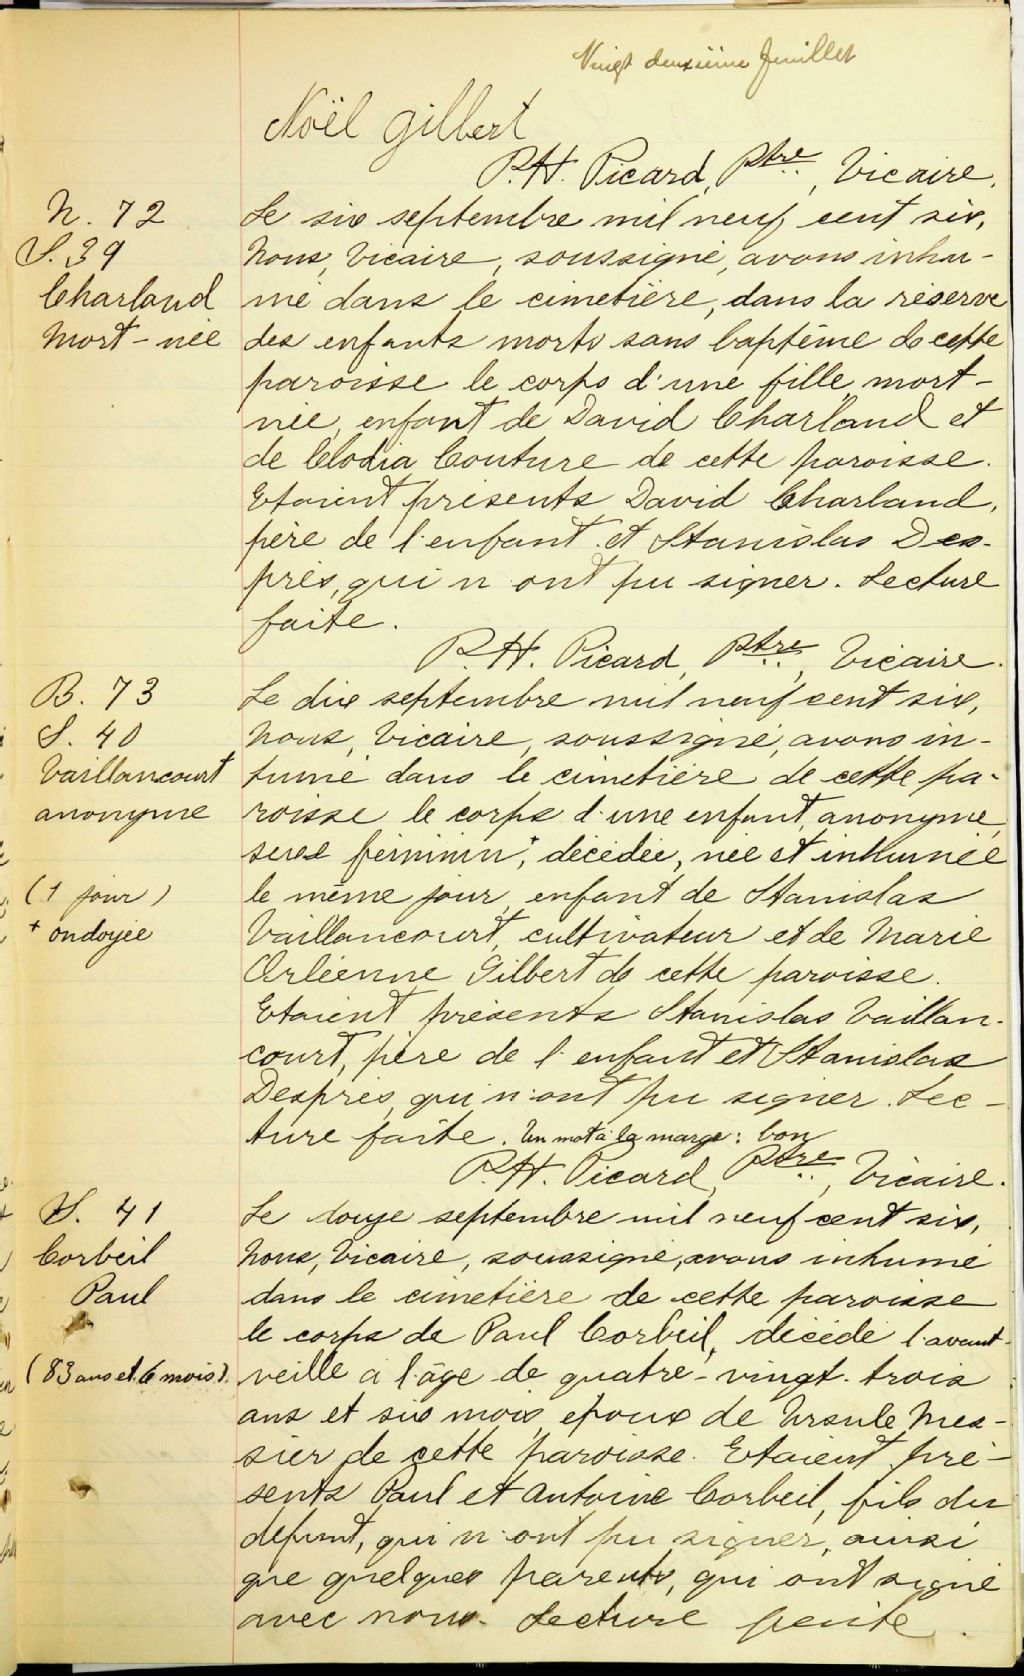 Vingt deuxième feuillet
Noël Gilbert
P.H. Picard, Ptre, Vicaire.
N. 72
S. 39
Charland
Mort-née
Le six septembre mil neuf cent six,
Nous, Vicaire, soussigné, avons inhu-
mé dans le cimetière, dans la réserve
des enfants morts sans baptême de cette
paroisse le corps d'une fille, mort-
née, enfant de David Charland et
de Clodia Couture de cette paroisse.
Etaient présents David Charland,
père de l'enfant et Stanislas Des-
prés, qui n'ont pu signer. Lecture
faite.
P.H. Picard, Ptre, Vicaire.
B. 73
S. 40
Vaillancourt
anonyme
(1 jour)
+ ondoyée
Le dix septembre mil neuf cent six,
Nous, Vicaire, soussigné, avons in-
humé dans le cimetière de cette pa-
roisse le corps d'une enfant, anonyme,
sexe féminin,+ décédée, née et inhumée
le même jour, enfant de Stanislas
Vaillancourt, cultivateur et de Marie
Orléenne Gilbert de cette paroisse.
Etaient présents Stanislas Vaillan-
court, père de l'enfant et Stanislas
Després, qui n'ont pu signer. Lec-
ture faite. Un mot à la marge: bon
P.H. Picard, Ptre, Vicaire.
S. 41
Corbeil
Paul
(83 ans et 6 mois).
Le douze septembre mil neuf cent six,
Nous, Vicaire, soussigné, avons inhumé
dans le cimetière de cette paroisse
le corps de Paul Corbeil, décédé l'avant-
veille à l'âge de quatre-vingt-trois
ans et six mois, époux de Ursule Mes-
sier de cette paroisse. Etaient pré-
sents Paul et Antoine Corbeil, fils du
défunt, qui n'ont pu signer, ainsi
que quelques parents, qui ont signé
avec nous. Lecture faite.